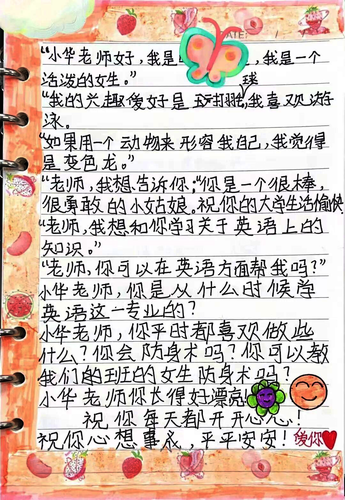 “小华老师好，我是，我是一个
活泼的女生。”
“我的兴趣爱好是打球，我喜欢游
泳。
“如果用一个动物来形容我自己，我觉得
是变色龙。”
“老师，我想告诉你，“你是一个很棒，
很勇敢的小姑娘。祝你的大学生活愉快
“老师，我想和你学习关于英语上的
知识。”
“老师，你可以在英语方面帮我吗？”
小华老师，你是从什么时候学
英语这一专业的？
小华老师，你平时都喜欢做些
什么？你会防身术吗？你可以教
我们的班的女生防身术吗？
小华老师你长得好漂亮
祝你每天都开开心心！
祝你心想事成，平平安安！爱你